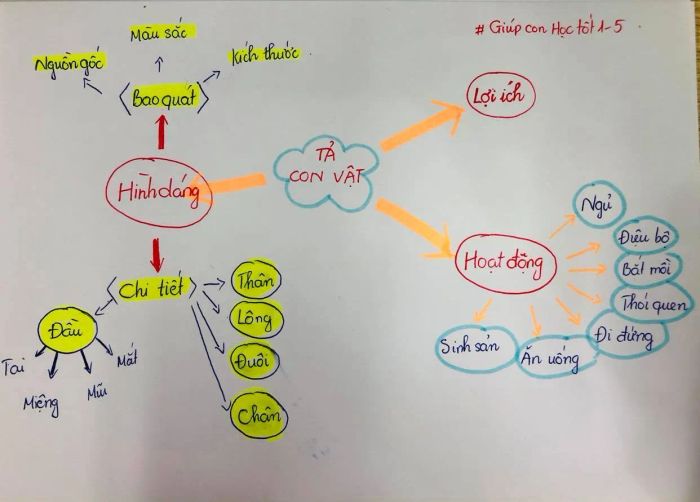 # Giúp con Học tốt 1-5
TẢ
CON VẬT
Hình dáng
Bao quát
Nguồn gốc
Màu sắc
Kích thước
Chi tiết
Đầu
Tai
Miệng
Mũi
Mắt
Thân
Lông
Đuôi
Chân
Lợi ích
Hoạt động
Ngủ
Điệu bộ
Bắt mồi
Thói quen
Đi đứng
Ăn uống
Sinh sản